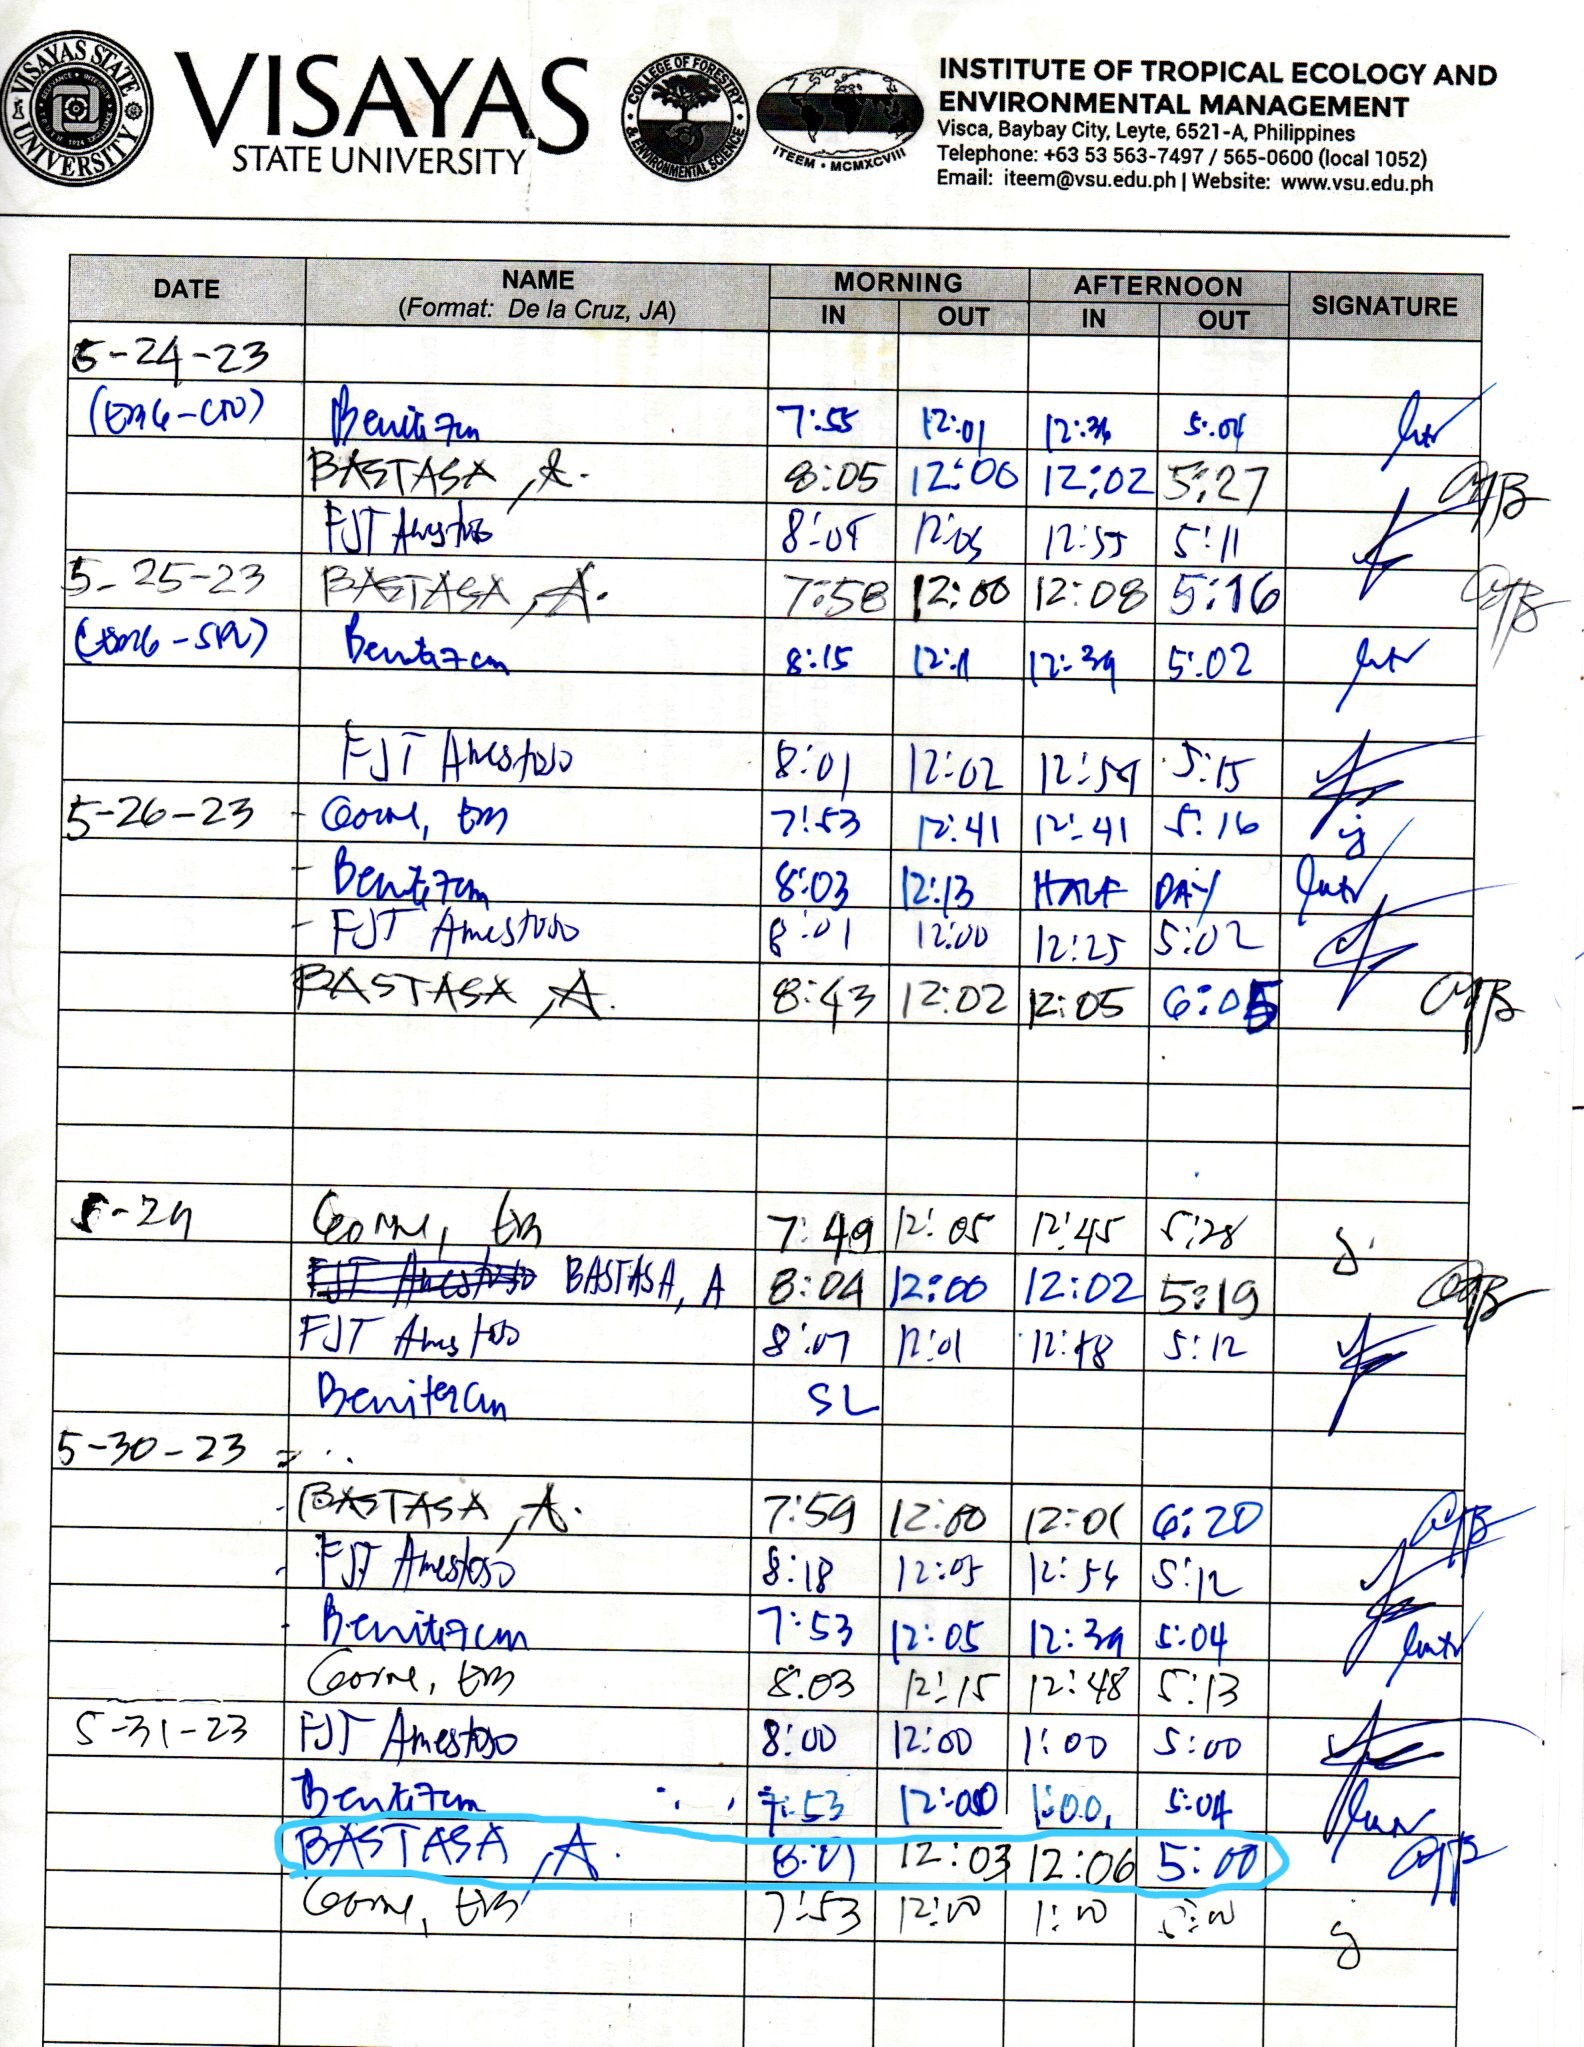 VISAYAS STATE UNIVERSITY
VISAYAS
STATE UNIVERSITY
COLLEGE OF FORESTRY & ENVIRONMENTAL SCIENCE
ITEEM • MCMXCVIII
INSTITUTE OF TROPICAL ECOLOGY AND
ENVIRONMENTAL MANAGEMENT
Visca, Baybay City, Leyte, 6521-A, Philippines
Telephone: +63 53 563-7497 / 565-0600 (local 1052)
Email: iteem@vsu.edu.ph | Website: www.vsu.edu.ph
DATE NAME MORNING AFTERNOON SIGNATURE
(Format: De la Cruz, JA) IN OUT IN OUT
5-24-23
7:55 12:01 12:36 5:04
BASTASA, A. 8:05 12:00 12:02 5:27
FJT Amestoso 12:55 5:11
5-25-23 BASTASA, A. 7:58 12:00 12:08 5:16
8:15 12:11 12:39 5:02
FJT Amestoso 8:01 12:02 12:59 5:15
5-26-23 - Gorne, EM 7:53 12:41 12:41 5:16
- 8:03 12:13 HALF DAY
- FJT Amestoso 8:01 12:00 12:25 5:02
BASTASA, A. 8:43 12:02 12:05 6:05
5-29 Gorne, EM 7:49 12:05 12:45 5:28
BASTASA, A 8:04 12:00 12:02 5:19
FJT Amestoso 8:07 12:01 12:48 5:12
SL
5-30-23
BASTASA, A. 7:59 12:00 12:01 6:20
FJT Amestoso 8:18 12:05 12:54 5:12
7:53 12:05 12:39 5:04
Gorne, EM 8:03 12:15 12:48 5:13
5-31-23 FJT Amestoso 8:00 12:00 1:00 5:00
7:53 12:00 1:00 5:04
BASTASA, A. 8:01 12:03 12:06 5:00
Gorne, EM 7:53 12:00 1:00 5:00